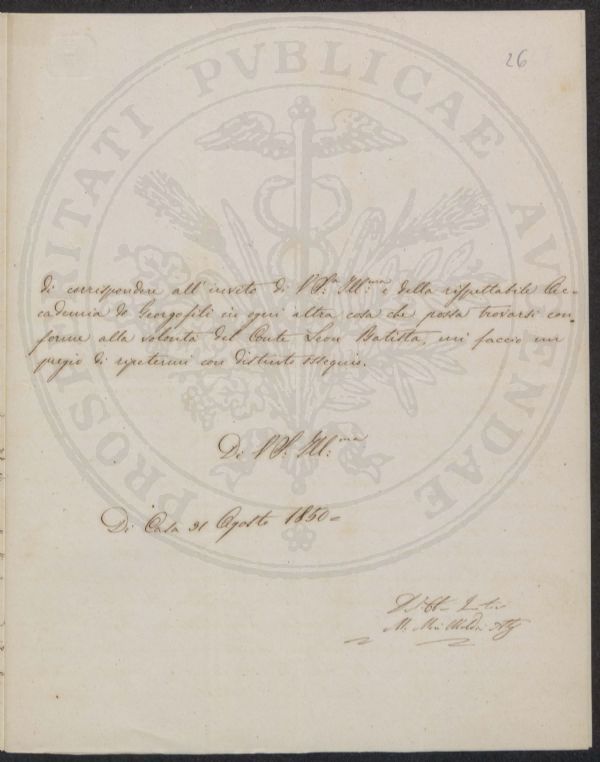 26
PROSPERITATI PVBLICAE AVGENDAE
di corrispondere all' invito di V. S.ia Ill:ma e della rispettabile Ac-
cademia de Georgofili in ogni altra cosa che possa trovarsi con
forme alla volontà del Conte Leon Batista, mi faccio un
pregio di ripetermi con distinto ossequio.
Di V. S. Ill:ma
Di Casa 31 Agosto 1850 =